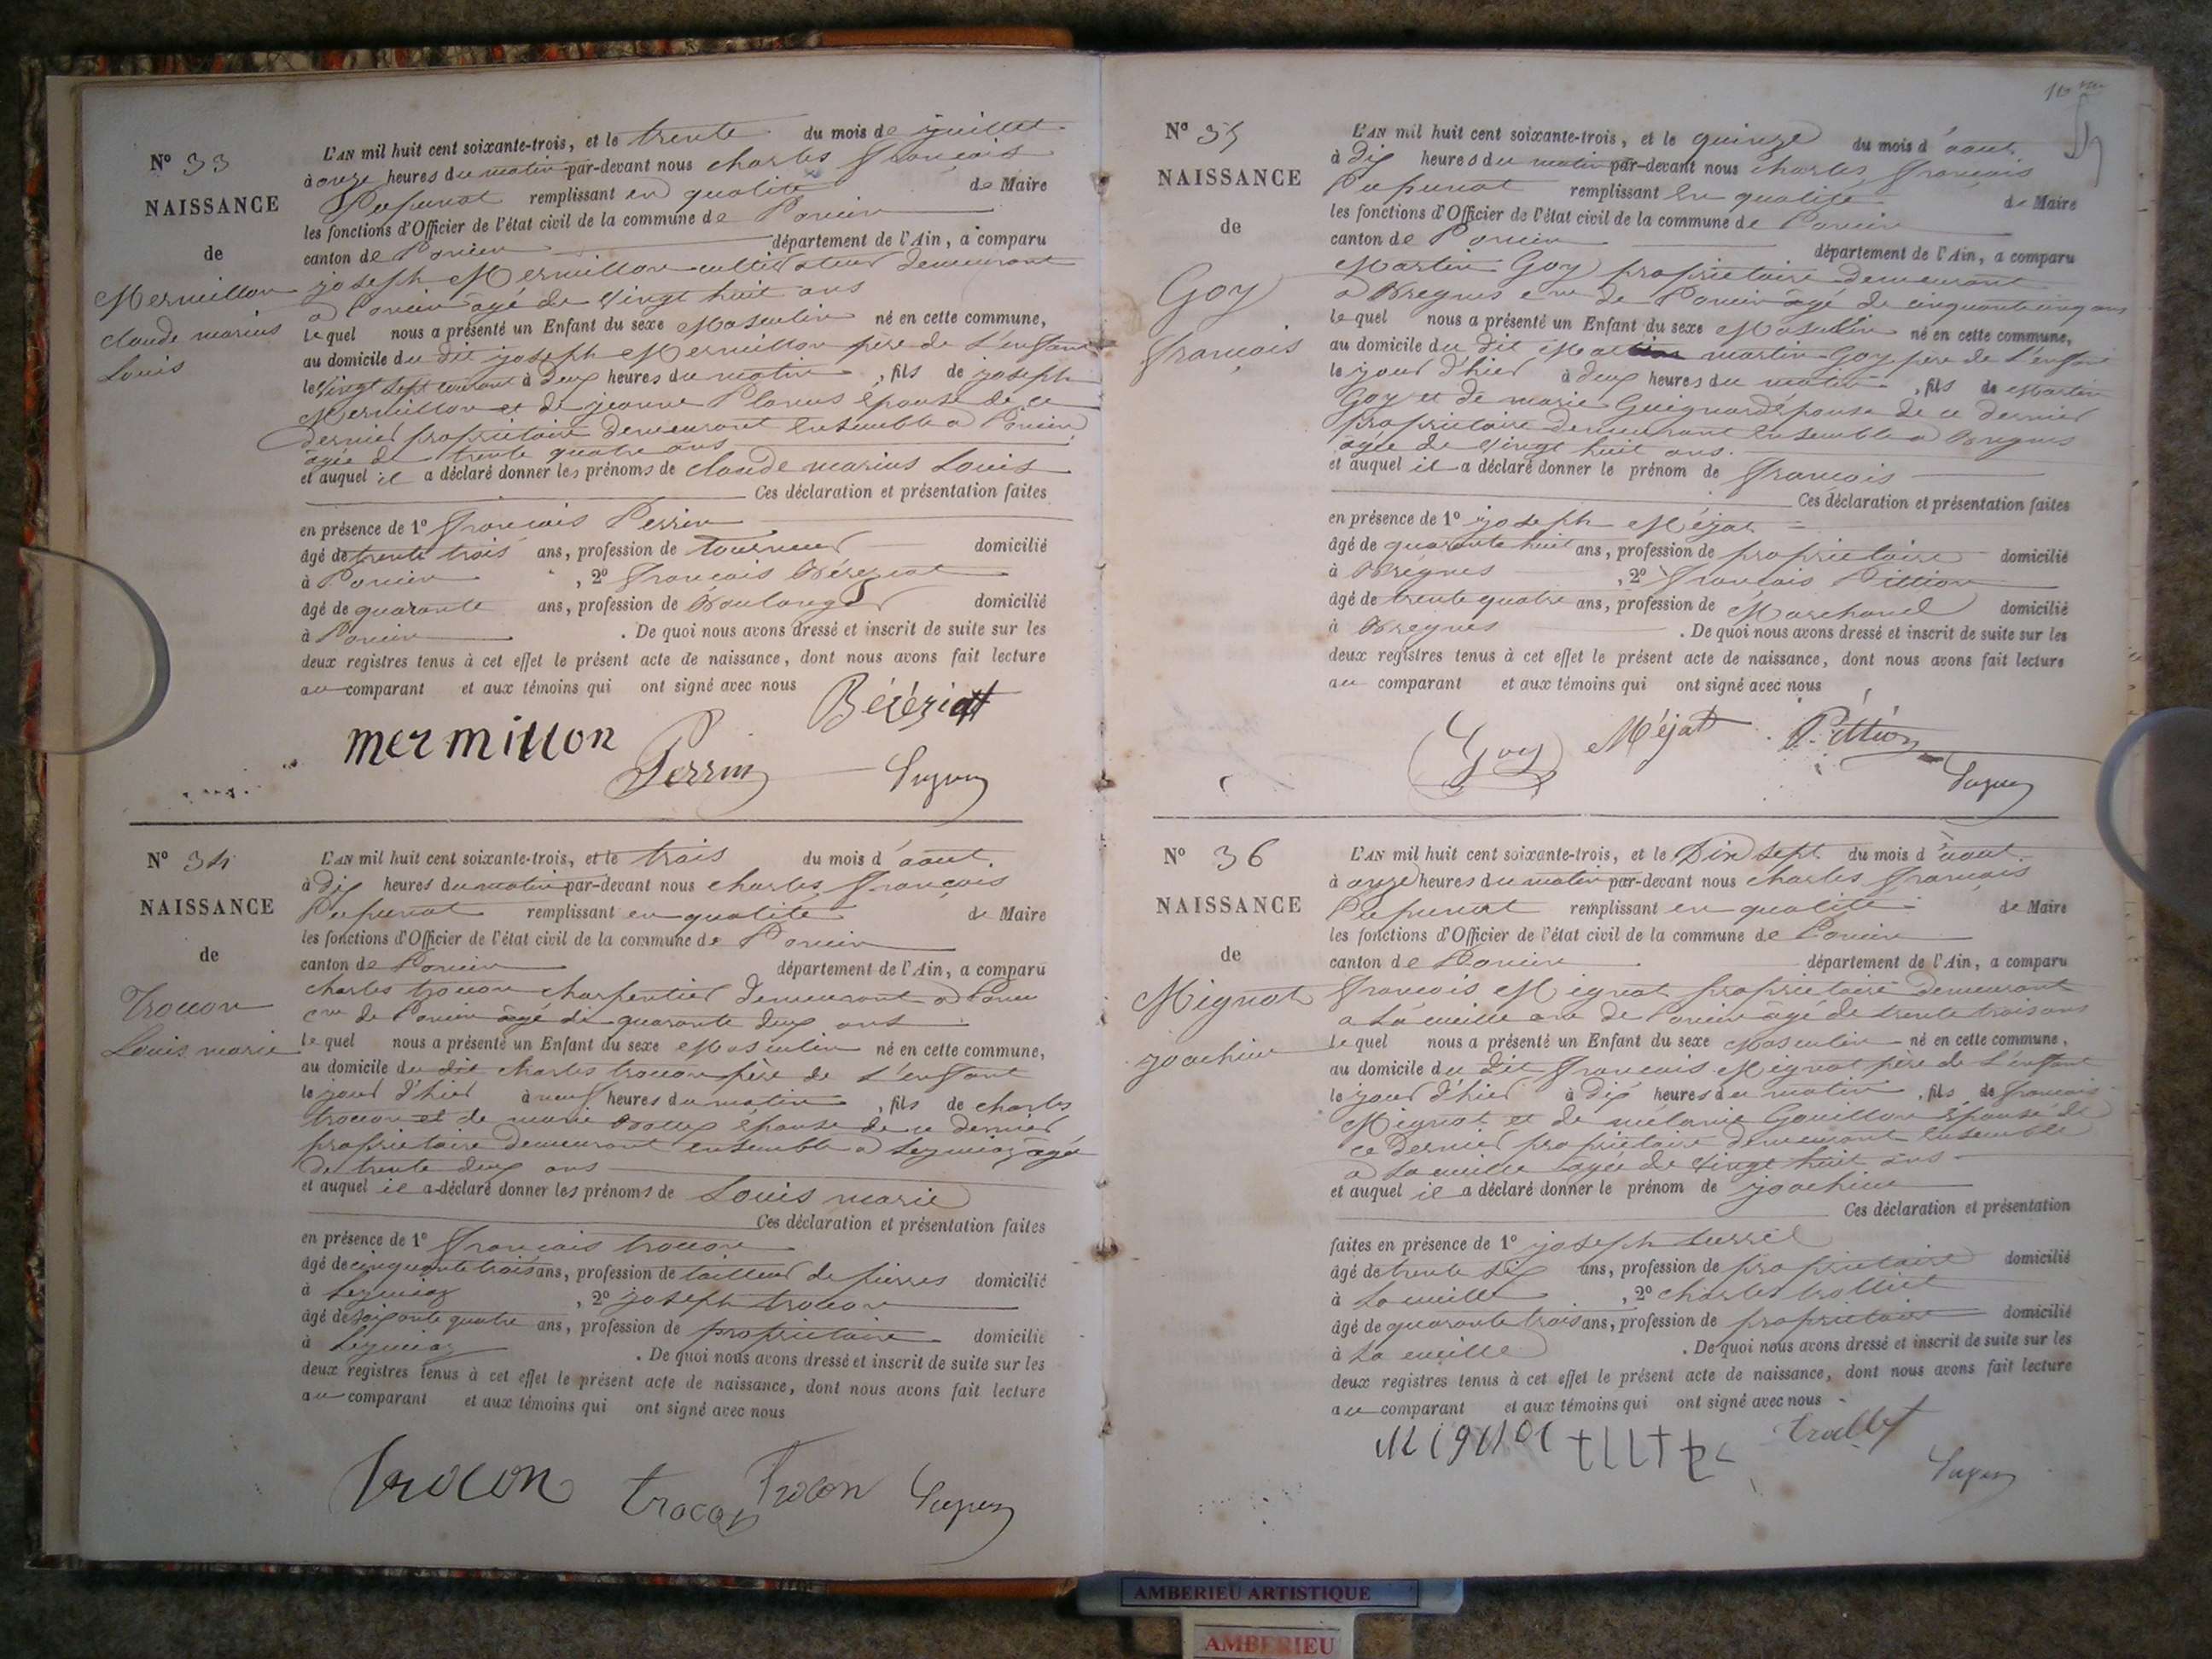 N° 33
NAISSANCE
de
Mermillon
claude marius
Louis
L'AN mil huit cent soixante-trois, et le trente du mois de juillet
à onze heures du matin par-devant nous charles françois
remplissant en qualité de Maire
les fonctions d'Officier de l'état civil de la commune de Poncin
canton de Poncin département de l'Ain, a comparu
joseph Mermillon cultivateur demeurant
a Poncin âgé de vingt huit ans
lequel nous a présenté un Enfant du sexe Masculin né en cette commune,
au domicile du dit joseph Mermillon père de l'enfant
le vingt sept courant à deux heures du matin, fils de joseph
Mermillon et de jeanne épouse de ce
dernier propriétaire demeurant ensemble a Poncin
âgée de trente quatre ans
et auquel il a déclaré donner les prénoms de claude marius Louis
Ces déclaration et présentation faites
en présence de 1° françois Perrin
âgé de trente trois ans, profession de tourneur domicilié
à Poncin, 2° françois Béréziat
âgé de quarante ans, profession de Boulanger domicilié
à Poncin. De quoi nous avons dressé et inscrit de suite sur les
deux registres tenus à cet effet le présent acte de naissance, dont nous avons fait lecture
au comparant et aux témoins qui ont signé avec nous
Béréziat
mermillon Perrin
N° 34
NAISSANCE
de
Trocon
Louis marie
L'AN mil huit cent soixante-trois, et le trois du mois d'aout
à dix heures du matin par-devant nous charles françois
remplissant en qualité de Maire
les fonctions d'Officier de l'état civil de la commune de Poncin
canton de Poncin département de l'Ain, a comparu
charles trocon charpentier demeurant a
de Poncin âgé de quarante deux ans
lequel nous a présenté un Enfant du sexe Masculin né en cette commune,
au domicile du dit charles trocon père de l'enfant
le jour d'hier à neuf heures du matin, fils de charles
trocon et de marie épouse de ce dernier
propriétaire demeurant ensemble a Leymiaz âgée
de trente deux ans
et auquel il a déclaré donner les prénoms de Louis marie
Ces déclaration et présentation faites
en présence de 1° françois trocon
âgé de cinquante trois ans, profession de tailleur de pierres domicilié
à Leymiaz, 2° joseph trocon
âgé de soixante quatre ans, profession de propriétaire domicilié
à Leymiaz. De quoi nous avons dressé et inscrit de suite sur les
deux registres tenus à cet effet le présent acte de naissance, dont nous avons fait lecture
au comparant et aux témoins qui ont signé avec nous
trocon trocon trocon
N° 35
NAISSANCE
de
Goy
françois
L'AN mil huit cent soixante-trois, et le quinze du mois d'aout
à dix heures du matin par-devant nous charles françois
remplissant en qualité de Maire
les fonctions d'Officier de l'état civil de la commune de Poncin
canton de Poncin département de l'Ain, a comparu
Martin Goy propriétaire demeurant
a Bregnes de Poncin âgé de cinquante cinq ans
lequel nous a présenté un Enfant du sexe Masculin né en cette commune,
au domicile du dit martin Goy père de l'enfant
le jour d'hier à deux heures du matin, fils de Martin
Goy et de marie Guignard épouse de ce dernier
propriétaire demeurant ensemble a Bregnes
âgée de vingt huit ans
et auquel il a déclaré donner le prénom de françois
Ces déclaration et présentation faites
en présence de 1° joseph Méjat
âgé de quarante huit ans, profession de propriétaire domicilié
à Bregnes, 2° françois Pittion
âgé de trente quatre ans, profession de Marchand domicilié
à Bregnes. De quoi nous avons dressé et inscrit de suite sur les
deux registres tenus à cet effet le présent acte de naissance, dont nous avons fait lecture
au comparant et aux témoins qui ont signé avec nous
Goy Méjat Pittion
N° 36
NAISSANCE
de
Mignot
joachim
L'AN mil huit cent soixante-trois, et le Dix sept du mois d'aout
à onze heures du matin par-devant nous charles françois
remplissant en qualité de Maire
les fonctions d'Officier de l'état civil de la commune de Poncin
canton de Poncin département de l'Ain, a comparu
françois Mignot propriétaire demeurant
a la cueille de Poncin âgé de trente trois ans
lequel nous a présenté un Enfant du sexe Masculin né en cette commune,
au domicile du dit françois Mignot père de l'enfant
le jour d'hier à dix heures du matin, fils de françois
Mignot et de mélanie Gouillon épouse de
ce dernier propriétaire demeurant ensemble
a la cueille âgée de vingt huit ans
et auquel il a déclaré donner le prénom de joachim
Ces déclaration et présentation
faites en présence de 1° joseph
âgé de trente six ans, profession de propriétaire domicilié
à la cueille, 2° charles trolliet
âgé de quarante trois ans, profession de propriétaire domicilié
à la cueille. De quoi nous avons dressé et inscrit de suite sur les
deux registres tenus à cet effet le présent acte de naissance, dont nous avons fait lecture
au comparant et aux témoins qui ont signé avec nous
Mignot
AMBERIEU ARTISTIQUE
AMBERIEU